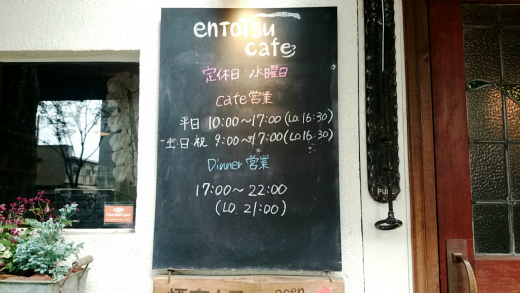 entotsu
cafe
定休日 水曜日
cafe営業
平日 10:00〜17:00(LO.16:30)
土・日・祝 9:00〜17:00(LO.16:30)
Dinner営業
17:00〜22:00
(LO. 21:00)
open